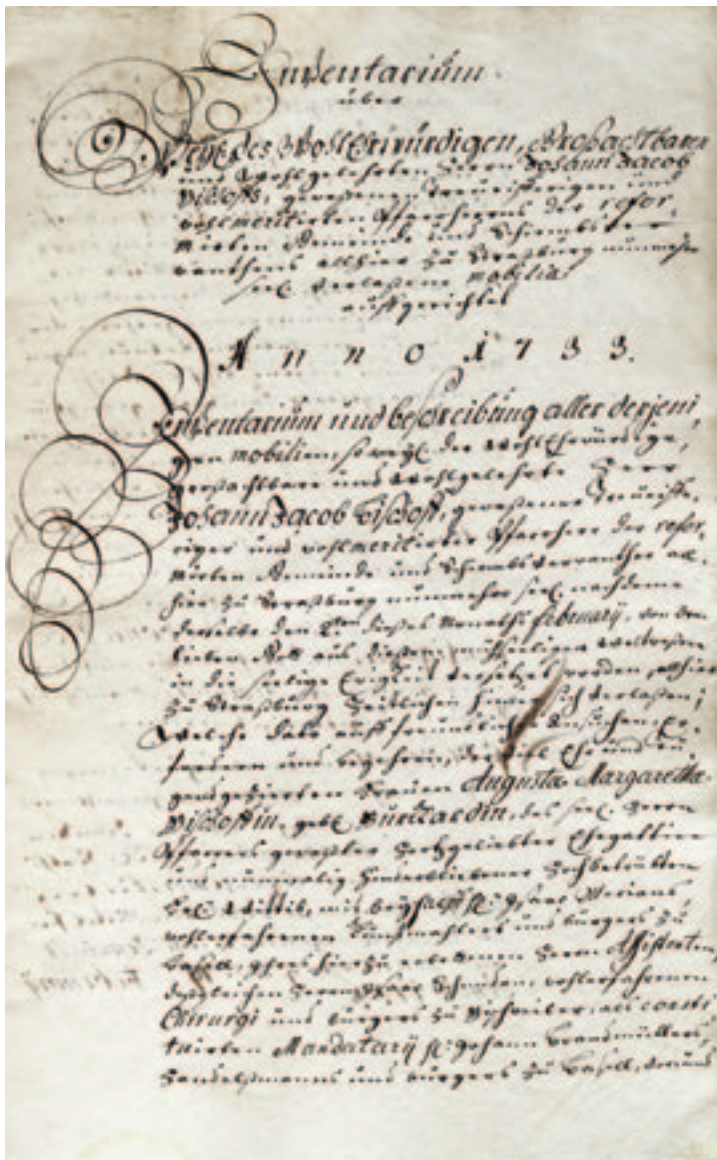 Inventarium
über
Weyl. des WohlEhrwürdigen, Großachtbaren
und Wohlgelehrten Herrn Johann Jacob
Bischoffs, geweßenen treueifferigen und
wohlmeritirten Pfarrherrns der refor,
mirten Gemeinde und Schirmbsver,
wanthens allhier zu Straßburg nunmehr
seel. verlaßene mobilia
auffgerichtet
Anno 1733.
Inventarium und beschreibung aller derjeni,
gen mobilien, so weyl. der WohlEhrwürdige,
Großachtbare und Wohlgelehrte Herr
Johann Jacob Bischoff, geweßener treueiffe,
riger und wohlmeritirter Pfarrherr der refor,
mirten Gemeinde und Schirmbsverwanther all,
hier zu Straßburg nunmehr seel. nachdeme
derselbe den dießes Monaths february, von dem
lieben Gott aus dießem müheseeligen
in die seelige Ewigkeit versetzet worden, allhier
zu Straßburg Zeitlichen hinder sich verlaßen;
Welche dato auff freundliches Ansuchen, er,
fordern und begehren, der Viel Ehr und tu,
gendgezierten Frauen Augusta Margaretha
Bischoffin, geb. des seel. Herrn
Pfarrers geweßter hertzgeliebter Ehegattin
und nunmehrig hinderbliebener hochbetrübten
Wittib, mit beystand Hr. Isaac Merians,
wohlerfahrenen Kunstmahlers und burgers zu
Basell, ihres hierzu erbettenen Herrn Assistenten,
desgleichen Herrn wohlerfahrenen
Chirurgi und burgers zu als consti,
tuirten Mandatarij Hr. Johann Brandmüllers,
Handelßmanns und burgers zu Basell,